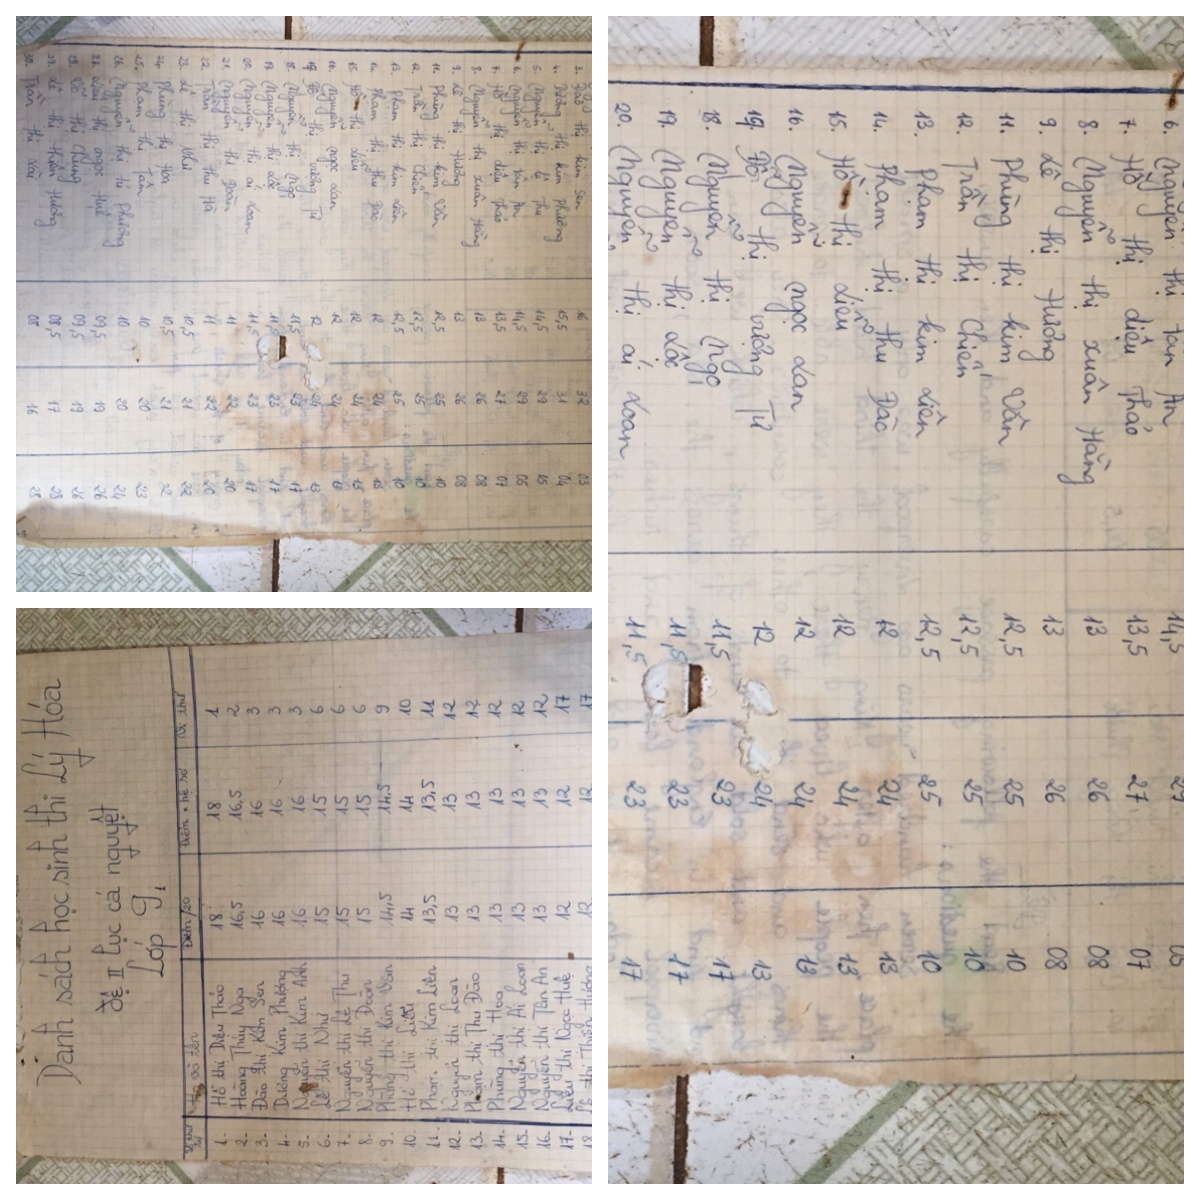 3. Đào thị kim Sen 16 32 03
4. Dương thị kim Phường 15,5 31 04
5. Nguyễn thị lệ Thu 14,5 29 05
6. Nguyễn thị tân An 14,5 29 05
7. Hồ thị diệu Thảo 13,5 27 07
8. Nguyễn thị xuân Hằng 13 26 08
9. Lê thị Hương 13 26 08
11. Phùng thị kim Vân 12,5 25 10
12. Trần thị Chiến 12,5 25 10
13. Phạm thị kim Liên 12,5 25 10
14. Phạm thị thu Đào 12 24 13
15. Hồ thị Liễu 12 24 13
16. Nguyễn ngọc Lan 12 24 13
19. Đỗ thị cường Tư 12 24 13
18. Nguyễn thị Ngộ 11,5 23 17
19. Nguyễn thị Lốc 11,5 23 17
20. Nguyễn thị ái Loan 11,5 23 17
21. Nguyễn thị Đoàn 11 22 20
22. Trần thị thu Hà 11 22 20
23. Lê thị Như 10,5 21 22
24. Phùng thị Hoa 10,5 21 22
25. Phạm thị Tâm 10 20 23
26. Nguyễn thị tú Phương 10 20 24
27. Liễu thị ngọc Huê 09,5 19 26
28. Võ thị Chung 09,5 19 26
29. Lê thị thiên Hương 08,5 17 28
30. Trần thị 08 16
Danh sách học sinh thi Lý Hóa
Đệ II lục cá nguyệt
Lớp 9₁
Số thứ tự Họ và tên Điểm/20 Điểm hệ số Vị thứ
1- Hồ thị Diệu Thảo 18 18 1
2- Hoàng Thúy Nga 16,5 16,5 2
3- Đào thị Kim Sen 16 16 3
4- Dương Kim Phường 16 16 3
5- Nguyễn thị Kim Anh 16 16 3
6- Lê thị Như 15 15 6
7- Nguyễn thị Lệ Thu 15 15 6
8- Nguyễn thị Đoàn 15 15 6
9- Phùng thị Kim Vân 14,5 14,5 9
10- Hồ thị Liễu 14 14 10
11- Phan thị Kim Liên 13,5 13,5 11
12- Nguyễn thị Loan 13 13 12
13- Phạm thị Thu Đào 13 13 12
14- Phùng thị Hoa 13 13 12
15- Nguyễn thị Ái Loan 13 13 12
16- Nguyễn thị Tân An 13 13 12
17- Liễu thị Ngọc Huê 12 12 17
18 Lê thị Thiên Hương 12 12 17
6. Nguyễn thị tân An 14,5 29 05
7. Hồ thị diệu Thảo 13,5 27 07
8. Nguyễn thị xuân Hằng 13 26 08
9. Lê thị Hương 13 26 08
11. Phùng thị kim Vân 12,5 25 10
12. Trần thị Chiến 12,5 25 10
13. Phạm thị kim Liên 12,5 25 10
14. Phạm thị thu Đào 12 24 13
15. Hồ thị Liễu 12 24 13
16. Nguyễn ngọc Lan 12 24 13
19. Đỗ thị cường Tư 12 24 13
18. Nguyễn thị Ngộ 11,5 23 17
19. Nguyễn thị Lốc 11,5 23 17
20. Nguyễn thị ái Loan 11,5 23 17